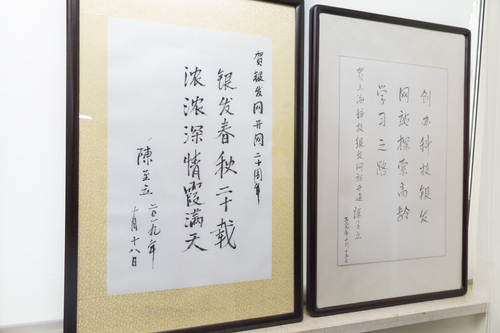 贺银发网开网二十周年
银发春秋二十载
浓浓深情霞满天
陳至立 二〇一九年
十月十八日
创办科技银发
网站探索高龄
学习之路
贺上海科技银发网站开通